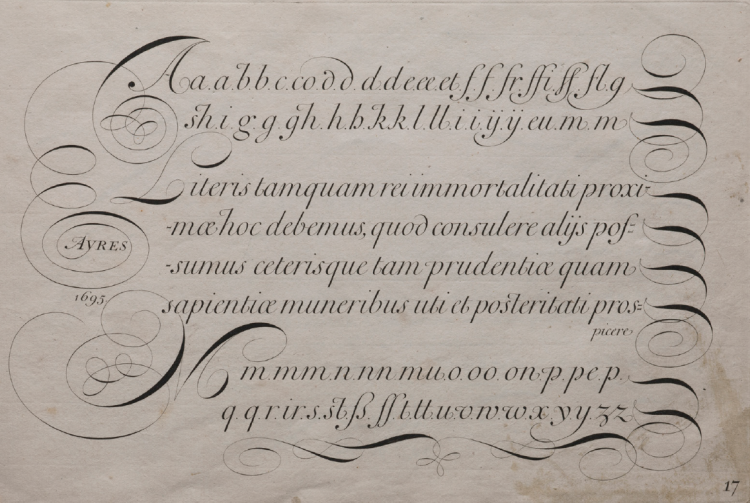 A a.a.b.b.c.co.d.d d.d.e.e.et f.f.fr.ffi.ff.fl.g
sh.i g.g.gh.h.h.k.k.l.ll.i.i.ij.ij.eu.m.m
Literis tamquam rei immortalitati proxi-
-mæ hoc debemus, quod consulere alijs pos=
-sumus ceterisque tam prudentiæ quam
sapientiæ muneribus uti et posteritati pros=
picere
AYRES
1695
M m.mm.n.nn mu.o.oo.on.p.pe.p.
q q r.ir.s.st.ß.ſſ.t.tt.u.v.w.w.x.y.y.z.z.
17